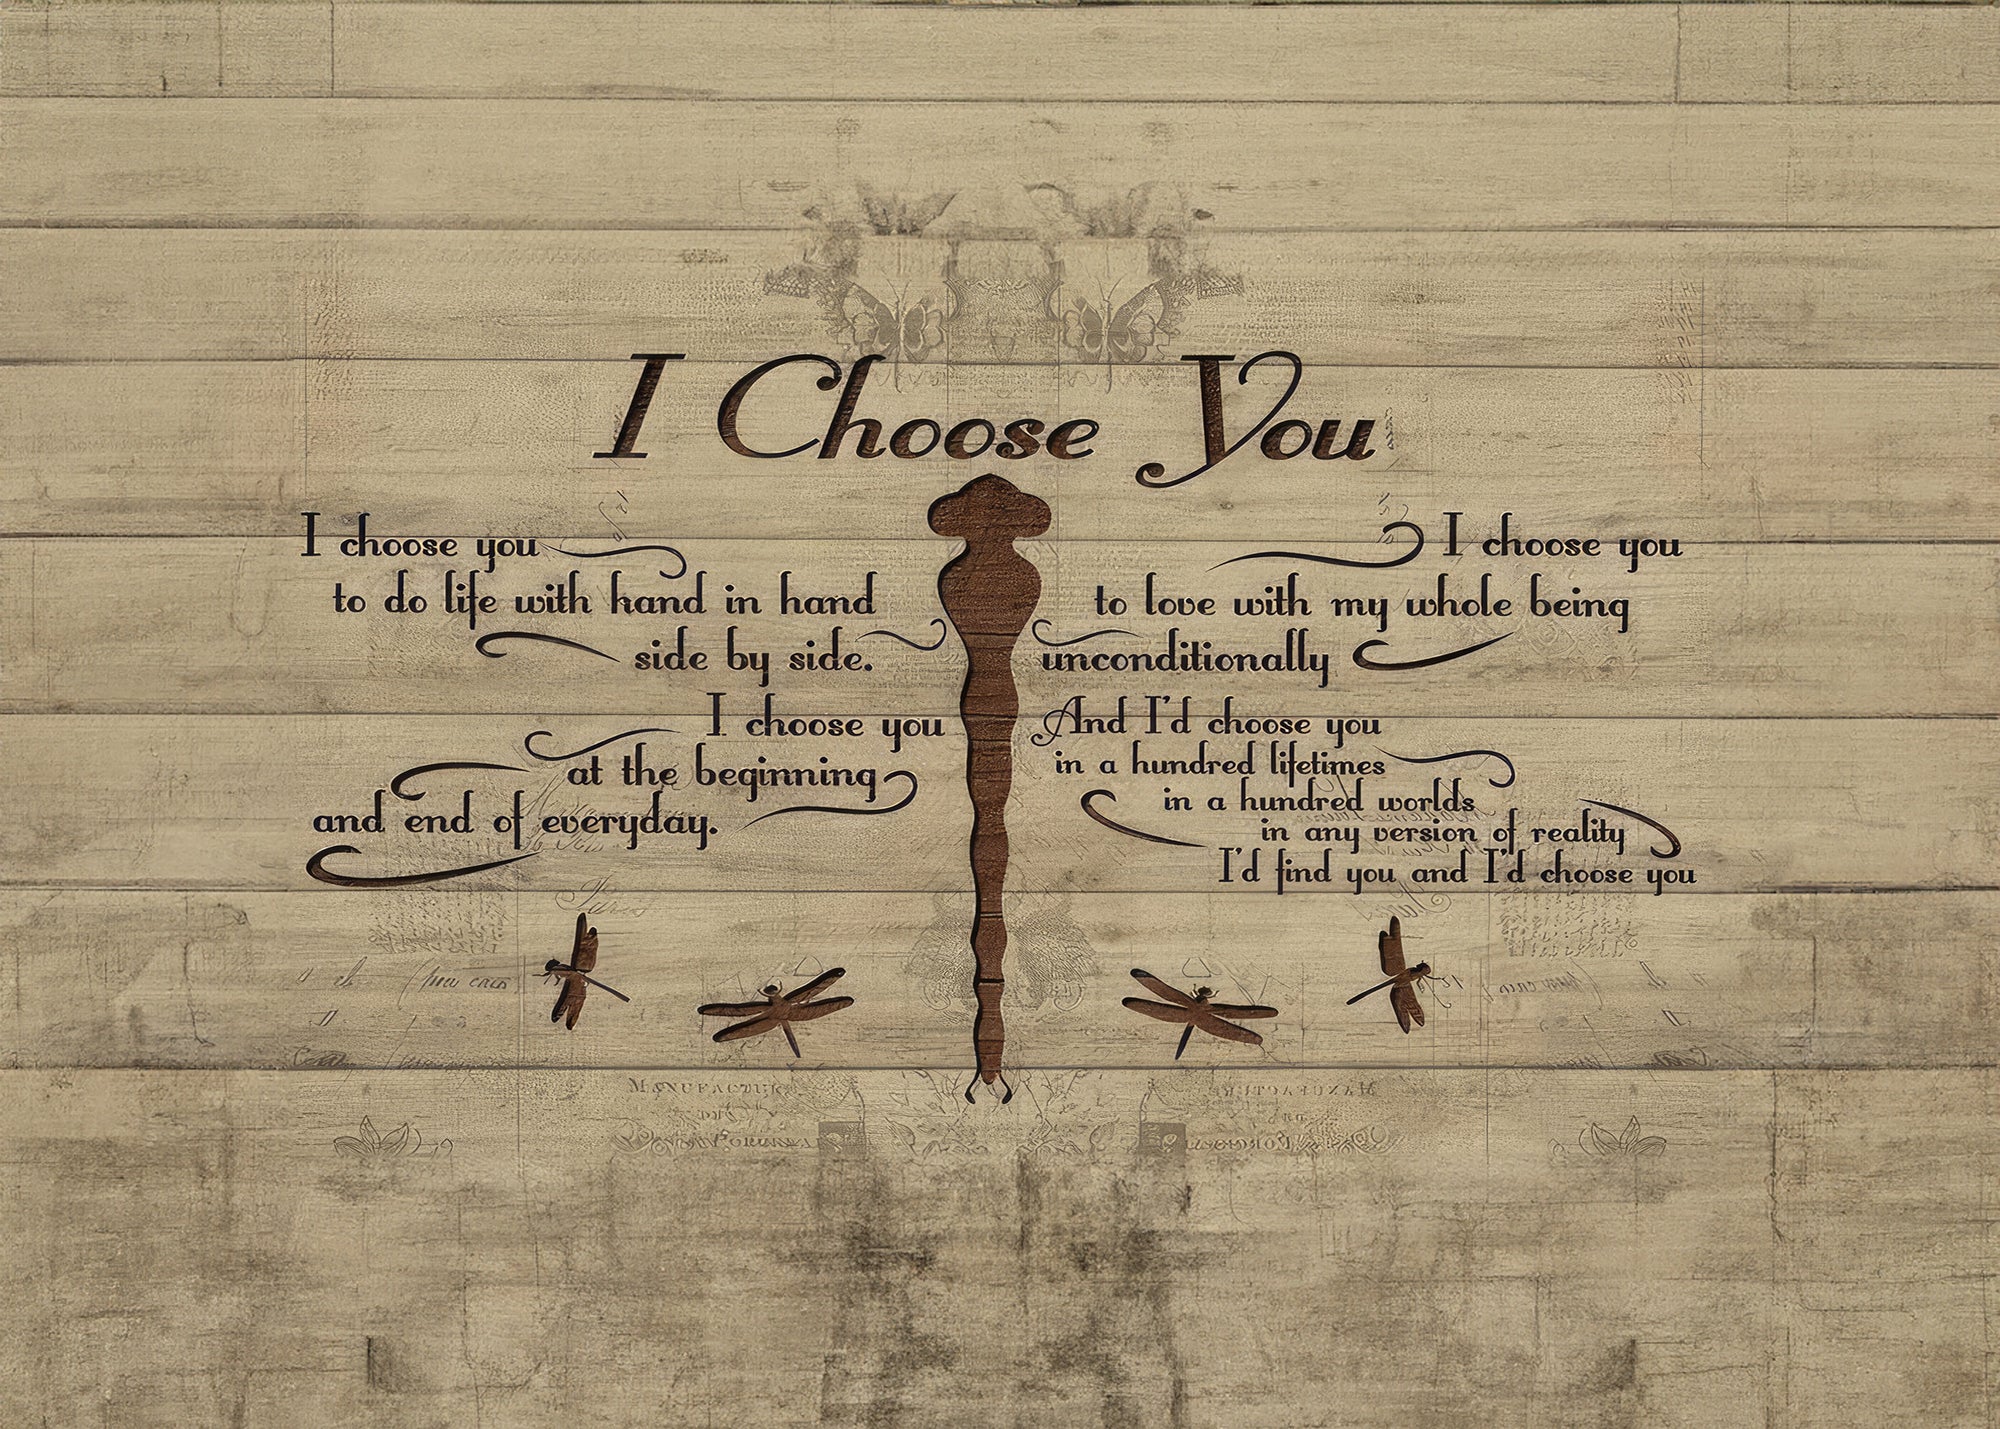 I Choose You
I choose you
to do life with hand in hand
side by side.
I choose you
at the beginning
and end of everyday.
I choose you
to love with my whole being
unconditionally
And I'd choose you
in a hundred lifetimes
in a hundred worlds
in any version of reality
I'd find you and I'd choose you
Paris
MANUFACTUR